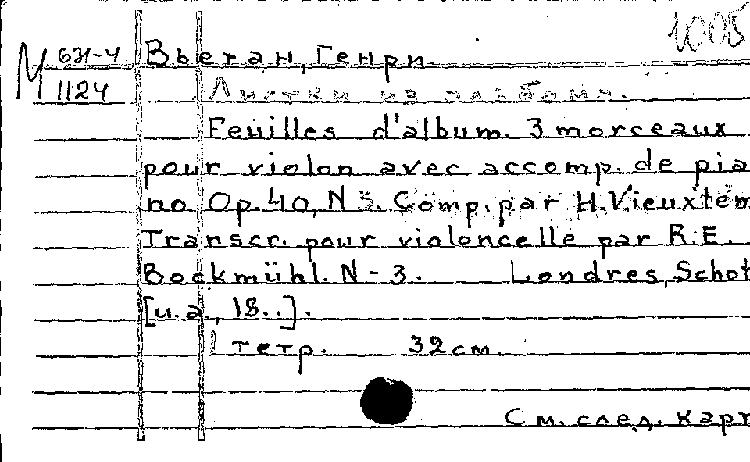 1005
М 631-4 Вьетан, Генри.
1124 Листки из альбома.
Feuilles d'album. 3 morceaux
pour violon avec accomp. de pia
no Op. 40, N 3. Comp. par H. Vieuxtem
Transcr. pour violoncelle par R. E.
Bockmühl. N-3. Londres, Schot
[u. a., 18..].
1 тетр. 32 см.
См. след. карт